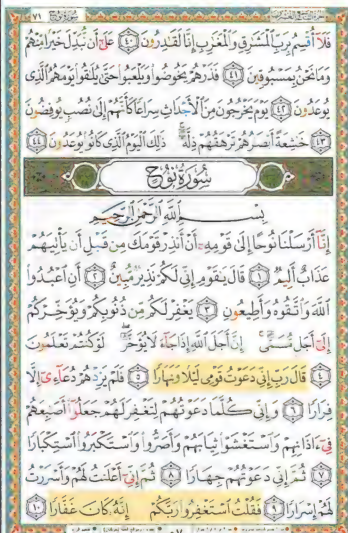 سورة نوح ٧١
فَلَآ أُقْسِمُ بِرَبِّ ٱلْمَشَٰرِقِ وَٱلْمَغَٰرِبِ إِنَّا لَقَٰدِرُونَ ٤٠ عَلَىٰٓ أَن نُّبَدِّلَ خَيْرًا مِّنْهُمْ
وَمَا نَحْنُ بِمَسْبُوقِينَ ٤١ فَذَرْهُمْ يَخُوضُوا۟ وَيَلْعَبُوا۟ حَتَّىٰ يُلَٰقُوا۟ يَوْمَهُمُ ٱلَّذِى
يُوعَدُونَ ٤٢ يَوْمَ يَخْرُجُونَ مِنَ ٱلْأَجْدَاثِ سِرَاعًا كَأَنَّهُمْ إِلَىٰ نُصُبٍ يُوفِضُونَ
٤٣ خَٰشِعَةً أَبْصَٰرُهُمْ تَرْهَقُهُمْ ذِلَّةٌ ۚ ذَٰلِكَ ٱلْيَوْمُ ٱلَّذِى كَانُوا۟ يُوعَدُونَ ٤٤
سُورَةُ نُوحٍ
بِسْمِ ٱللَّهِ ٱلرَّحْمَٰنِ ٱلرَّحِيمِ
إِنَّآ أَرْسَلْنَا نُوحًا إِلَىٰ قَوْمِهِۦٓ أَنْ أَنذِرْ قَوْمَكَ مِن قَبْلِ أَن يَأْتِيَهُمْ
عَذَابٌ أَلِيمٌ ١ قَالَ يَٰقَوْمِ إِنِّى لَكُمْ نَذِيرٌ مُّبِينٌ ٢ أَنِ ٱعْبُدُوا۟
ٱللَّهَ وَٱتَّقُوهُ وَأَطِيعُونِ ٣ يَغْفِرْ لَكُم مِّن ذُنُوبِكُمْ وَيُؤَخِّرْكُمْ
إِلَىٰٓ أَجَلٍ مُّسَمًّى ۚ إِنَّ أَجَلَ ٱللَّهِ إِذَا جَآءَ لَا يُؤَخَّرُ ۖ لَوْ كُنتُمْ تَعْلَمُونَ
٤ قَالَ رَبِّ إِنِّى دَعَوْتُ قَوْمِى لَيْلًا وَنَهَارًا ٥ فَلَمْ يَزِدْهُمْ دُعَآءِىٓ إِلَّا
فِرَارًا ٦ وَإِنِّى كُلَّمَا دَعَوْتُهُمْ لِتَغْفِرَ لَهُمْ جَعَلُوٓا۟ أَصَٰبِعَهُمْ
فِىٓ ءَاذَانِهِمْ وَٱسْتَغْشَوْا۟ ثِيَابَهُمْ وَأَصَرُّوا۟ وَٱسْتَكْبَرُوا۟ ٱسْتِكْبَارًا
٧ ثُمَّ إِنِّى دَعَوْتُهُمْ جِهَارًا ٨ ثُمَّ إِنِّىٓ أَعْلَنتُ لَهُمْ وَأَسْرَرْتُ
لَهُمْ إِسْرَارًا ٩ فَقُلْتُ ٱسْتَغْفِرُوا۟ رَبَّكُمْ إِنَّهُۥ كَانَ غَفَّارًا ١٠